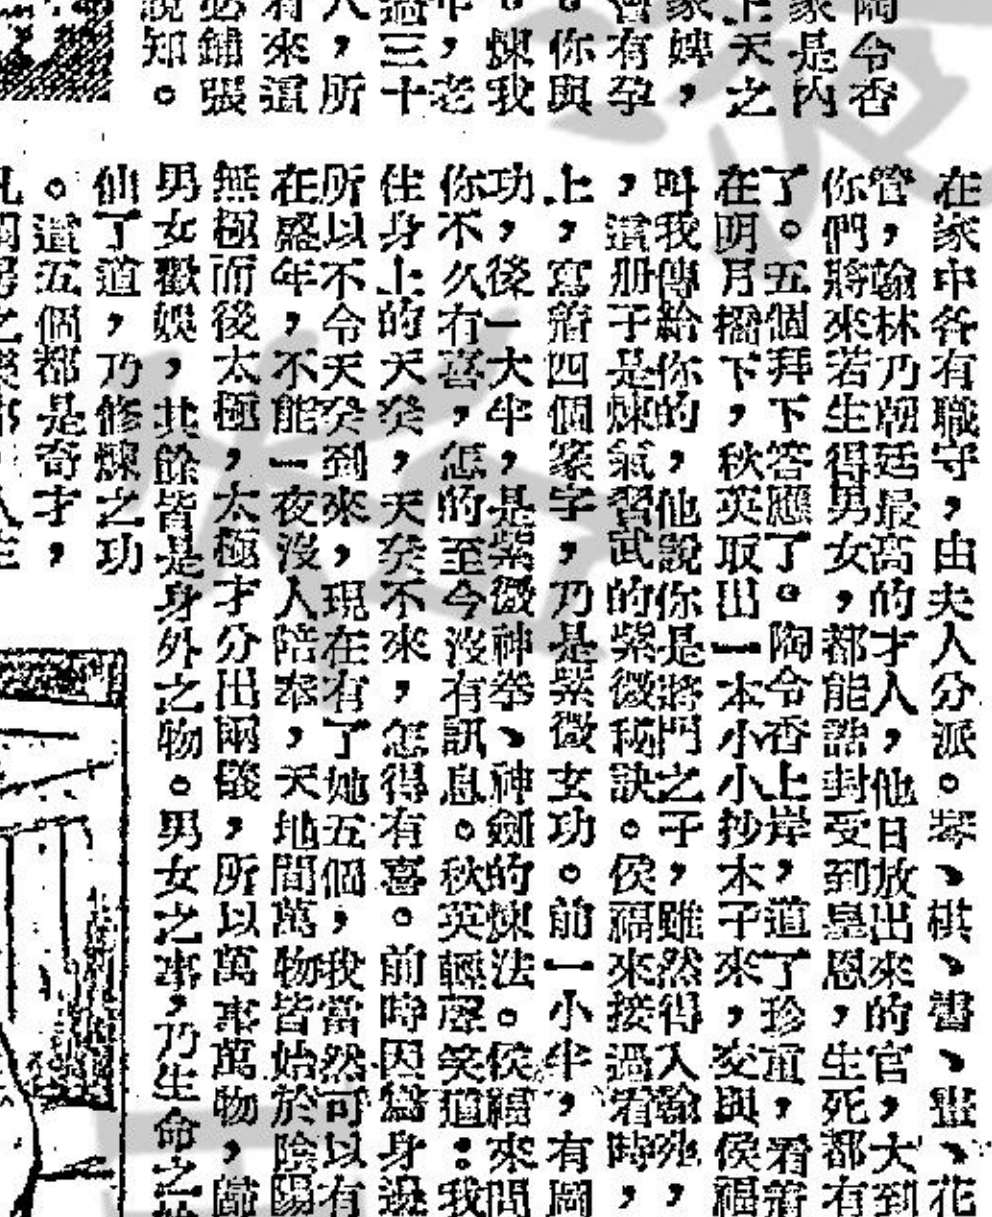 陶令香
家是內
上天之
家婢，
會有孕
。你與
。煉我
中，老
過三十
人，所
有來這
必鋪張
說知。
在家中各有職守，由夫人分派。琴、棋、書、畫、花
管，翰林乃朝廷最高的才人，他日放出來的官，大到
你們將來若生得男女，都能誥封受到皇恩，生死都有
了。五個拜下答應了。陶令香上岸，道了珍重，看着
在明月橋下，秋英取出一本小小抄本子來，交與侯福
叫我傳給你的，他說你是將門之子，雖然得入翰苑，
，這册子是煉氣習武的紫微秘訣。侯福來接過看時，
上，寫着四個篆字，乃是紫微玄功。前一小半，有圖
功，後一大半，是紫微神拳、神劍的煉法。侯福來問
你不久有喜，怎的至今沒有訊息。秋英輕聲笑道：我
住身上的天癸，天癸不來，怎得有喜。前時因爲身邊
所以不令天癸到來，現在有了她五個，我當然可以有
在盛年，不能一夜沒人陪奉，天地間萬物皆始於陰陽
無極而後太極，太極才分出兩儀，所以萬事萬物，歸
男女歡娛，其餘皆是身外之物。男女之事，乃生命之
仙了道，乃修煉之功
。這五個都是奇才，